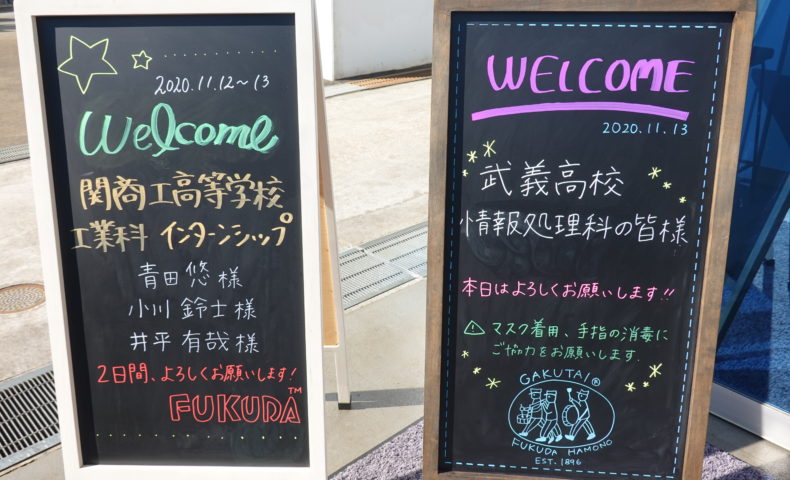 2020.11.12～13
Welcome
関商工高等学校
工業科 インターンシップ
青田 悠 様
小川 鈴士 様
井平 有哉 様
2日間、よろしくお願いします!
FUKUDA™
WELCOME
2020.11.13
武義高校
情報処理科の皆様
本日はよろしくお願いします!!
⚠ マスク着用、手指の消毒に
ご協力をお願いします.
GAKUTAI®
FUKUDA HAMONO
EST. 1896